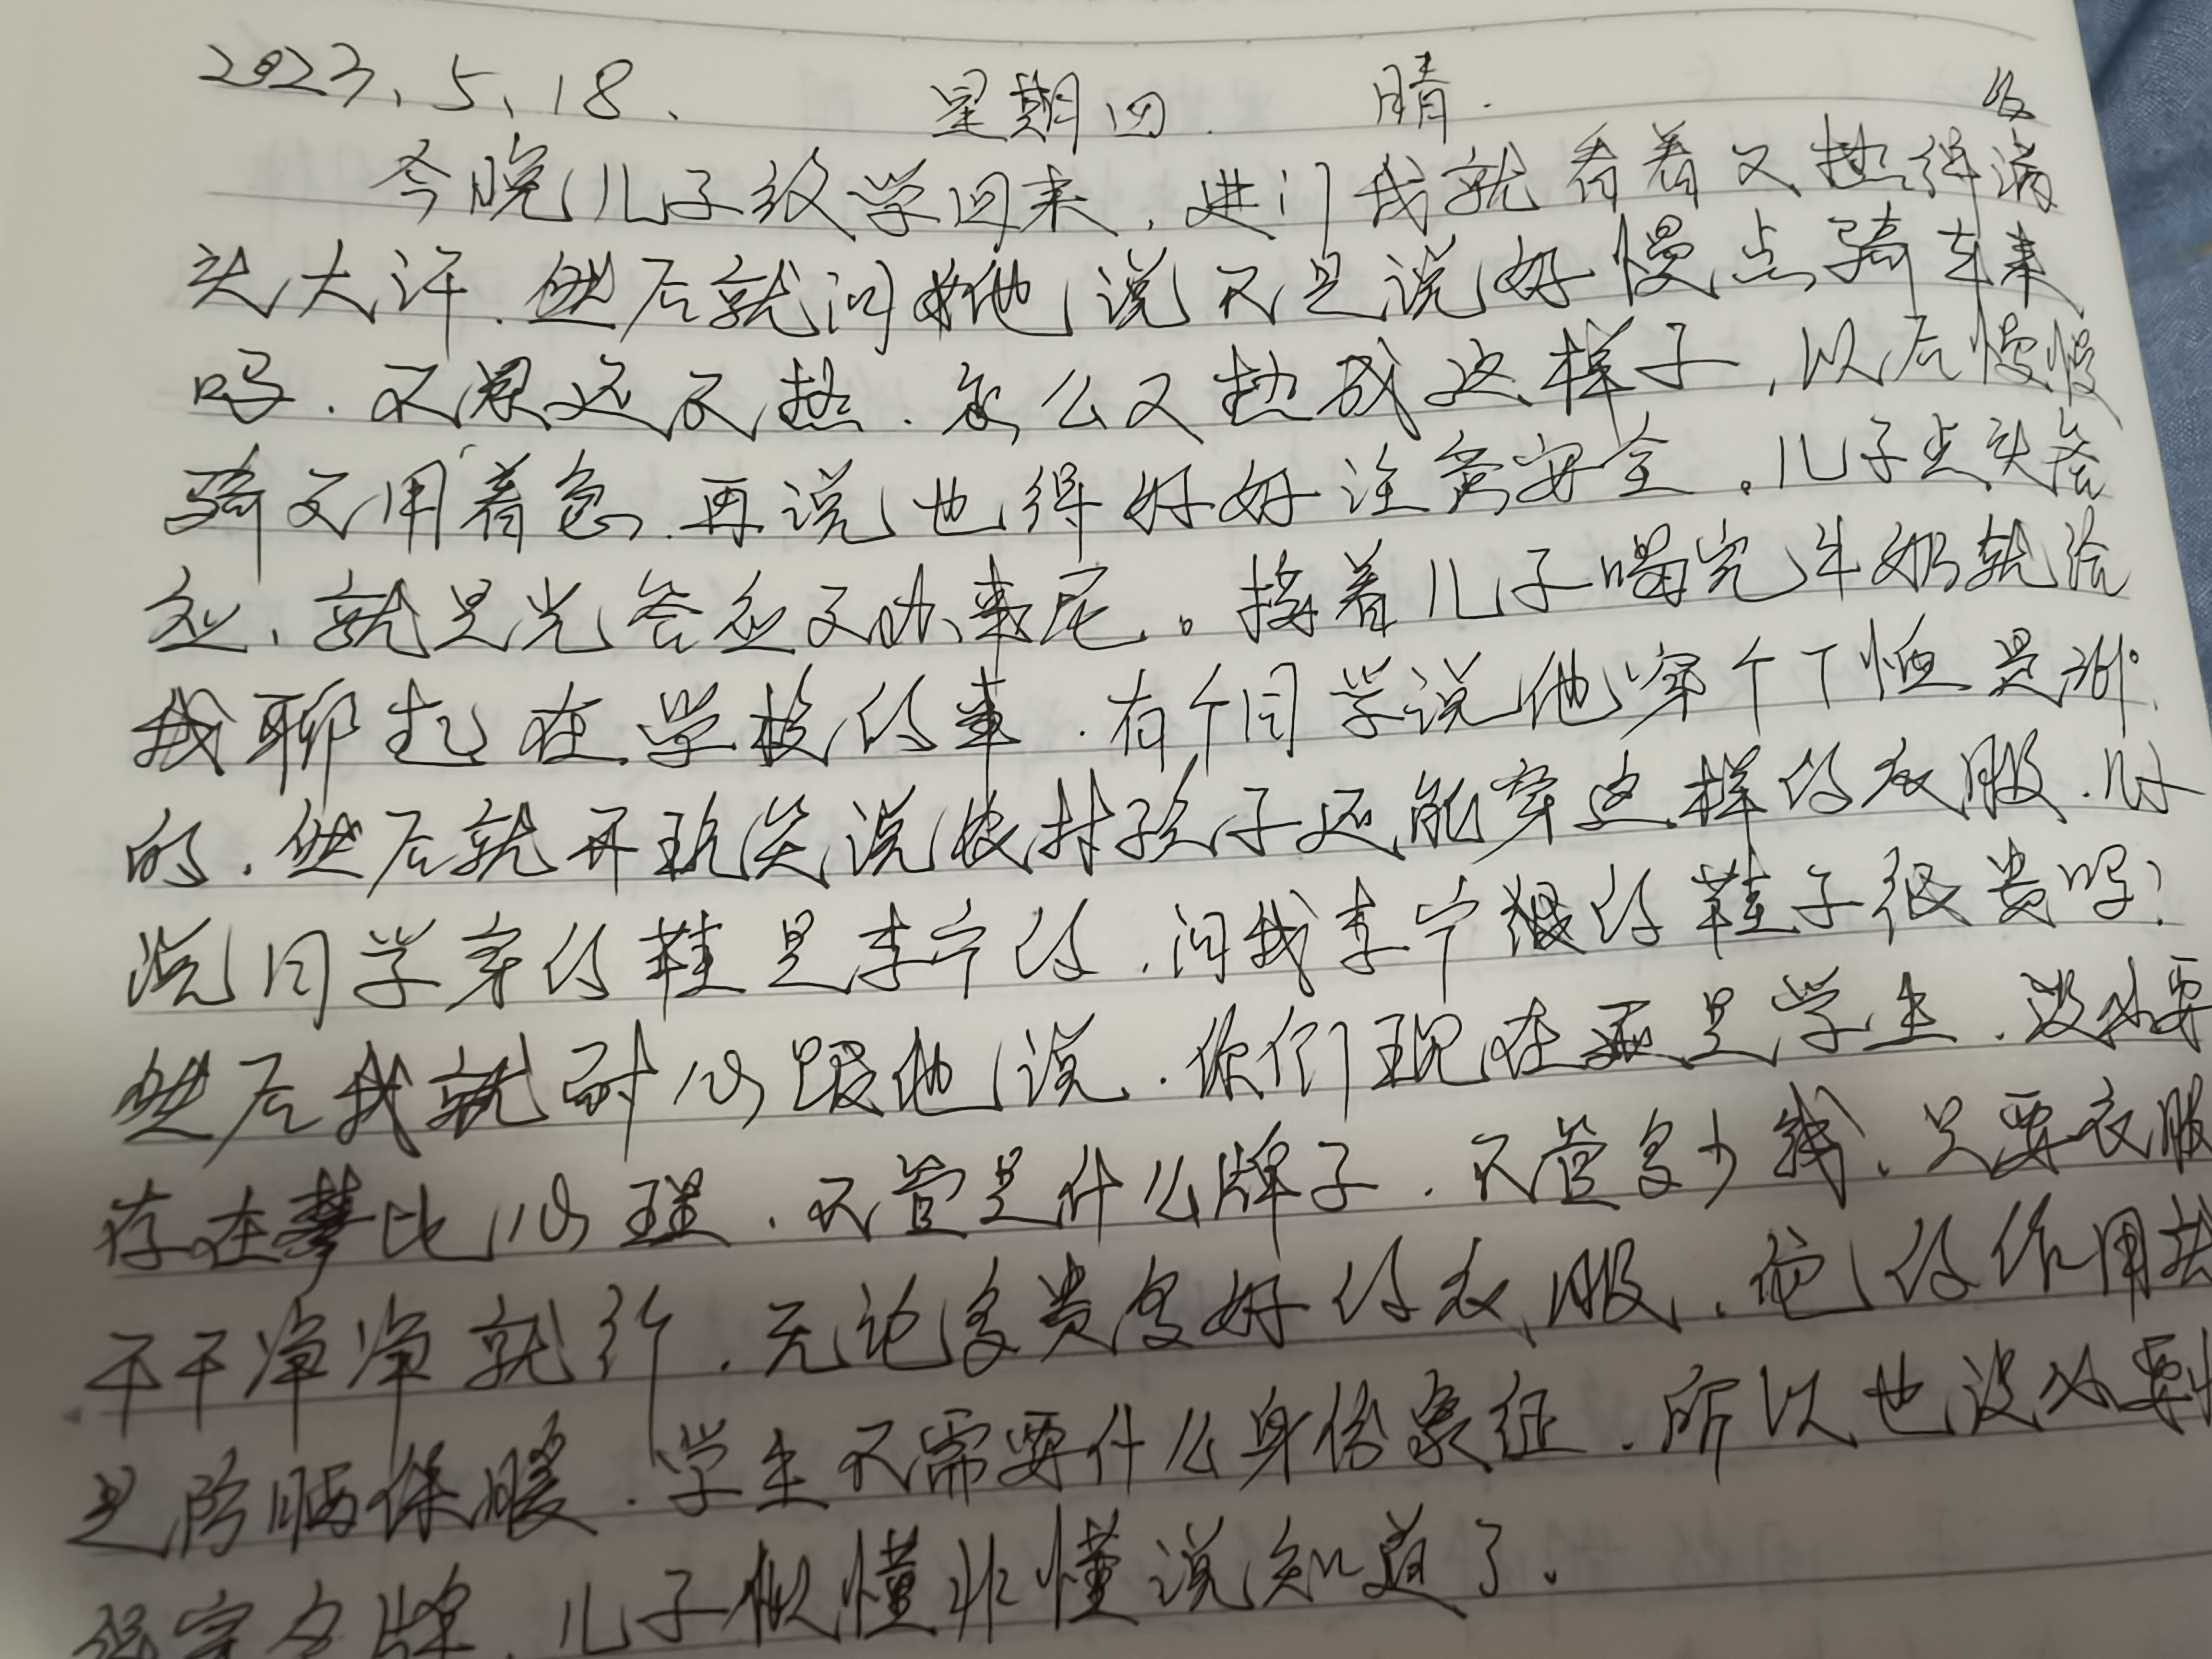 2023、5、18、 星期四. 晴.
今晚儿子放学回来,进门我就看着又热得满
头大汗.然后就问她他说不是说好慢点骑车来
吗.不累还不热.怎么又热成这样子,以后慢慢
骑不用着急.再说也得好好注意安全。儿子点头答
应、就是光答应不办事尼。接着儿子喝完牛奶就给
我聊起在学校的事.有个同学说他穿个T恤是
的.然后就开玩笑说农村孩子还能穿这样的衣服.儿子
说同学穿的鞋是李宁的.问我李宁的鞋子很贵吗?
然后我就耐心跟他说.你们现在是学生.没必要
存在攀比心理.不管是什么牌子.不管多少钱、只要衣服
干干净净就行.无论多贵多好的衣服.他的作用就
是防晒保暖.学生不需要什么身份象征.所以也没必要
穿名牌.儿子似懂非懂说知道了.